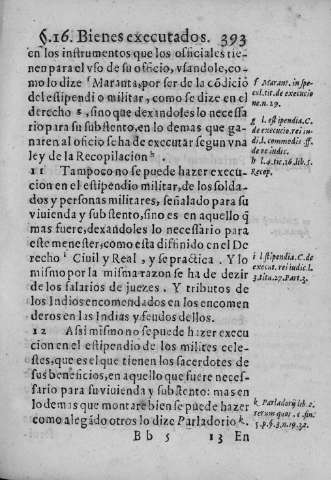 §.16. Bienes executados. 393
en los instrumentos que los oficiales tie-
nen para el vso de su oficio, vsandole, co-
mo lo dize ᶠ Maranta, por ser de la cõdiciõ
del estipendio militar, como se dize en el
derecho ᵍ, sino que dexandoles lo necessa
rio para su substento, en lo demas que ga-
naren al oficio se ha de executar segun vna
ley de la Recopilacion ʰ.
11 Tampoco no se puede hazer execu-
cion en el estipendio militar, de los solda-
dos y personas militares, señalado para su
viuienda y substento, sino es en aquello q̃
mas fuere, dexandoles lo necessario para
este menester, como esta difinido en el De
recho ⁱ Ciuil y Real, y se practica. Y lo
mismo por la misma razon se ha de dezir
de los salarios de juezes. Y tributos de
los Indios encomendados en los encomen
deros en las Indias y feudos dellos.
12 Assi mismo no se puede hazer execu
cion en el estipendio de los milites cele-
stes, que es el que tienen los sacerdotes de
sus beneficios, en aquello que fuere neces-
sario para su viuienda y substento: mas en
lo demas que montare bien se puede hazer
como alegãdo otros lo dize Parladorio ᵏ.
B b 5 13 En
f Marant. in spe
cul. tit. de executio
ne n. 29.
g l. stipendia. C.
de executio. rei iu
di. l. commodis ff.
de re iudic.
h l. 4. tit. 16. lib. 5.
Recop.
i l stipendia C. de
execut. rei iudic. l.
3. titu. 27. Part. 3.
k Parladorij lib. 2.
rerum quot. c. fin.
5. p. §. 3. n. 19. 32.